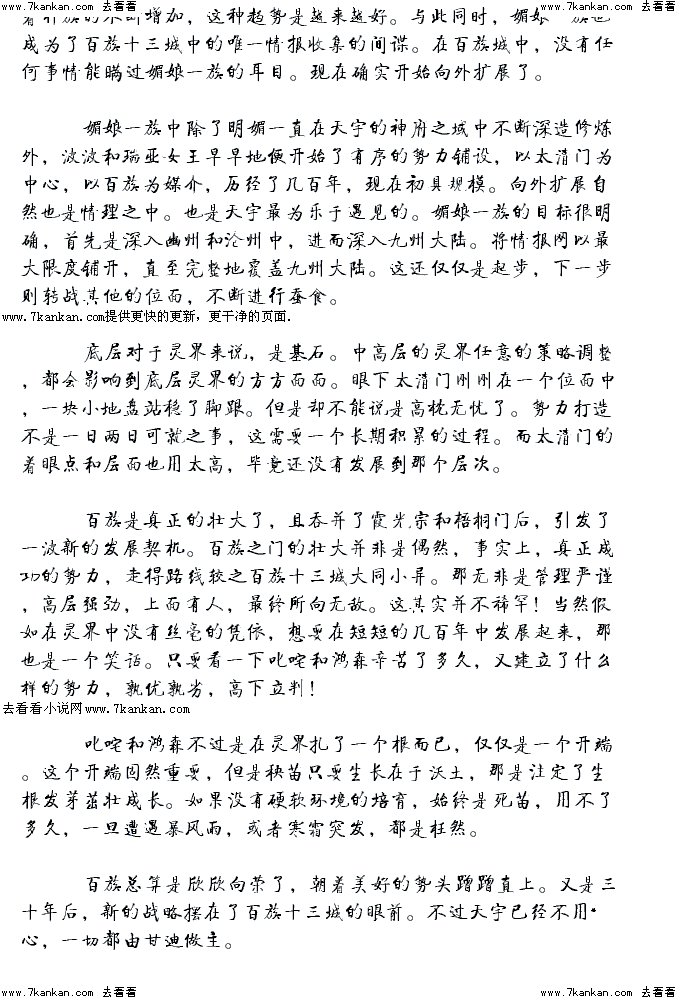 www.7kankan.com 去看看 www.7kankan.com 去看看
增加，这种趋势是越来越好。与此同时，媚娘一族也
成为了百族十三城中的唯一情报收集的间谍。在百族城中，没有任
何事情能瞒过媚娘一族的耳目。现在确实开始向外扩展了。
媚娘一族中除了明媚一直在天宇的神府之域中不断深造修炼
外，波波和瑞亚女王早早地便开始了有序的势力铺设，以太清门为
中心，以百族为媒介，历经了几百年，现在初具规模。向外扩展自
然也是情理之中。也是天宇最为乐于遇见的。媚娘一族的目标很明
确，首先是深入幽州和沧州中，进而深入九州大陆。将情报网以最
大限度铺开，直至完整地覆盖九州大陆。这还仅仅是起步，下一步
则转战其他的位面，不断进行蚕食。
www.7kankan.com提供更快的更新，更干净的页面.
底层对于灵界来说，是基石。中高层的灵界任意的策略调整
，都会影响到底层灵界的方方面面。眼下太清门刚刚在一个位面中
，一块小地盘站稳了脚跟。但是却不能说是高枕无忧了。势力打造
不是一日两日可就之事，这需要一个长期积累的过程。而太清门的
着眼点和层面也用太高，毕竟还没有发展到那个层次。
百族是真正的壮大了，且吞并了霞光宗和梧桐门后，引发了
一波新的发展契机。百族之门的壮大并非是偶然，事实上，真正成
功的势力，走得路线较之百族十三城大同小异。那无非是管理严谨
，高层强劲，上面有人，最终所向无敌。这其实并不稀罕！当然假
如在灵界中没有丝毫的凭依，想要在短短的几百年中发展起来，那
也是一个笑话。只要看一下叱咤和鸿森辛苦了多久，又建立了什么
样的势力，孰优孰劣，高下立判！
去看看小说网www.7kankan.com
叱咤和鸿森不过是在灵界扎了一个根而已，仅仅是一个开端
。这个开端固然重要，但是秧苗只要生长在于沃土，那是注定了生
根发芽茁壮成长。如果没有硬软环境的培育，始终是死苗，用不了
多久，一旦遭遇暴风雨，或者寒霜突发，都是枉然。
百族总算是欣欣向荣了，朝着美好的势头蹭蹭直上。又是三
十年后，新的战略摆在了百族十三城的眼前。不过天宇已经不用·
心，一切都由甘迪做主。
www.7kankan.com 去看看 www.7kankan.com 去看看